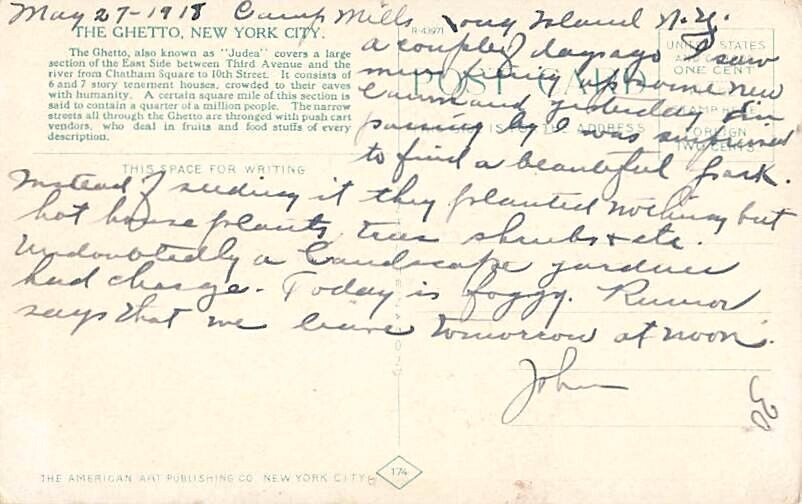 May 27-1918 Camp Mills Long Island N.Y.
THE GHETTO, NEW YORK CITY.
The Ghetto, also known as "Judea" covers a large
section of the East Side between Third Avenue and the
river from Chatham Square to 10th Street. It consists of
6 and 7 story tenement houses, crowded to their eaves
with humanity. A certain square mile of this section is
said to contain a quarter of a million people. The narrow
streets all through the Ghetto are thronged with push cart
vendors, who deal in fruits and food stuffs of every
description.
R-43971
POST CARD
UNITED STATES
ONE CENT
FOREIGN
TWO CENTS
IS THE ADDRESS
THIS SPACE FOR WRITING
a couple of days ago I saw
men fixing up some new
lawn and yesterday in
passing by I was surprised
to find a beautiful park.
Instead of seeding it they planted nothing but
hot house plants, trees shrubs & etc.
Undoubtedly a landscape gardner
had charge. Today is foggy. Rumor
says that we leave tomorrow at noon.
John
THE AMERICAN ART PUBLISHING CO. NEW YORK CITY
174